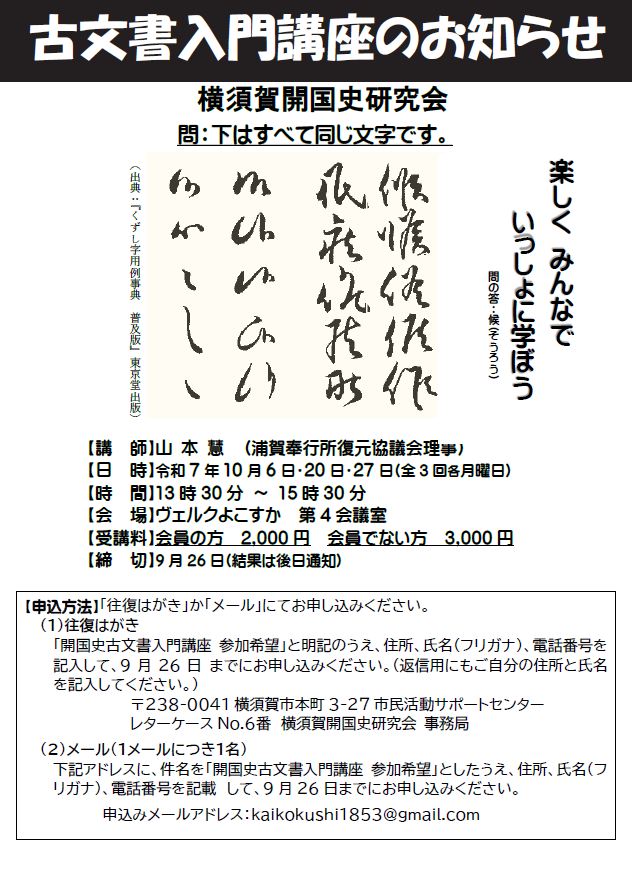 古文書入門講座のお知らせ
横須賀開国史研究会
問：下はすべて同じ文字です。
楽しく みんなで
いっしょに学ぼう
問の答：候（そうろう）
（出典：『くずし字用例事典　普及版』東京堂出版）
【講　師】山 本 慧　（浦賀奉行所復元協議会理事）
【日　時】令和７年10月６日・20日・27日（全３回各月曜日）
【時　間】13時30分 ～ 15時30分
【会　場】ヴェルクよこすか　第４会議室
【受講料】会員の方　2,000円　会員でない方　3,000円
【締　切】９月26日（結果は後日通知）
【申込方法】「往復はがき」か「メール」にてお申し込みください。
（１）往復はがき
「開国史古文書入門講座 参加希望」と明記のうえ、住所、氏名（フリガナ）、電話番号を
記入して、９月 26 日 までにお申し込みください。（返信用にもご自分の住所と氏名
を記入してください。）
〒238-0041 横須賀市本町 3-27 市民活動サポートセンター
レターケース No.6番 横須賀開国史研究会 事務局
（２）メール（１メールにつき１名）
下記アドレスに、件名を「開国史古文書入門講座 参加希望」としたうえ、住所、氏名（フ
リガナ）、電話番号を記載 して、９月26日までにお申し込みください。
申込みメールアドレス：kaikokushi1853@gmail.com